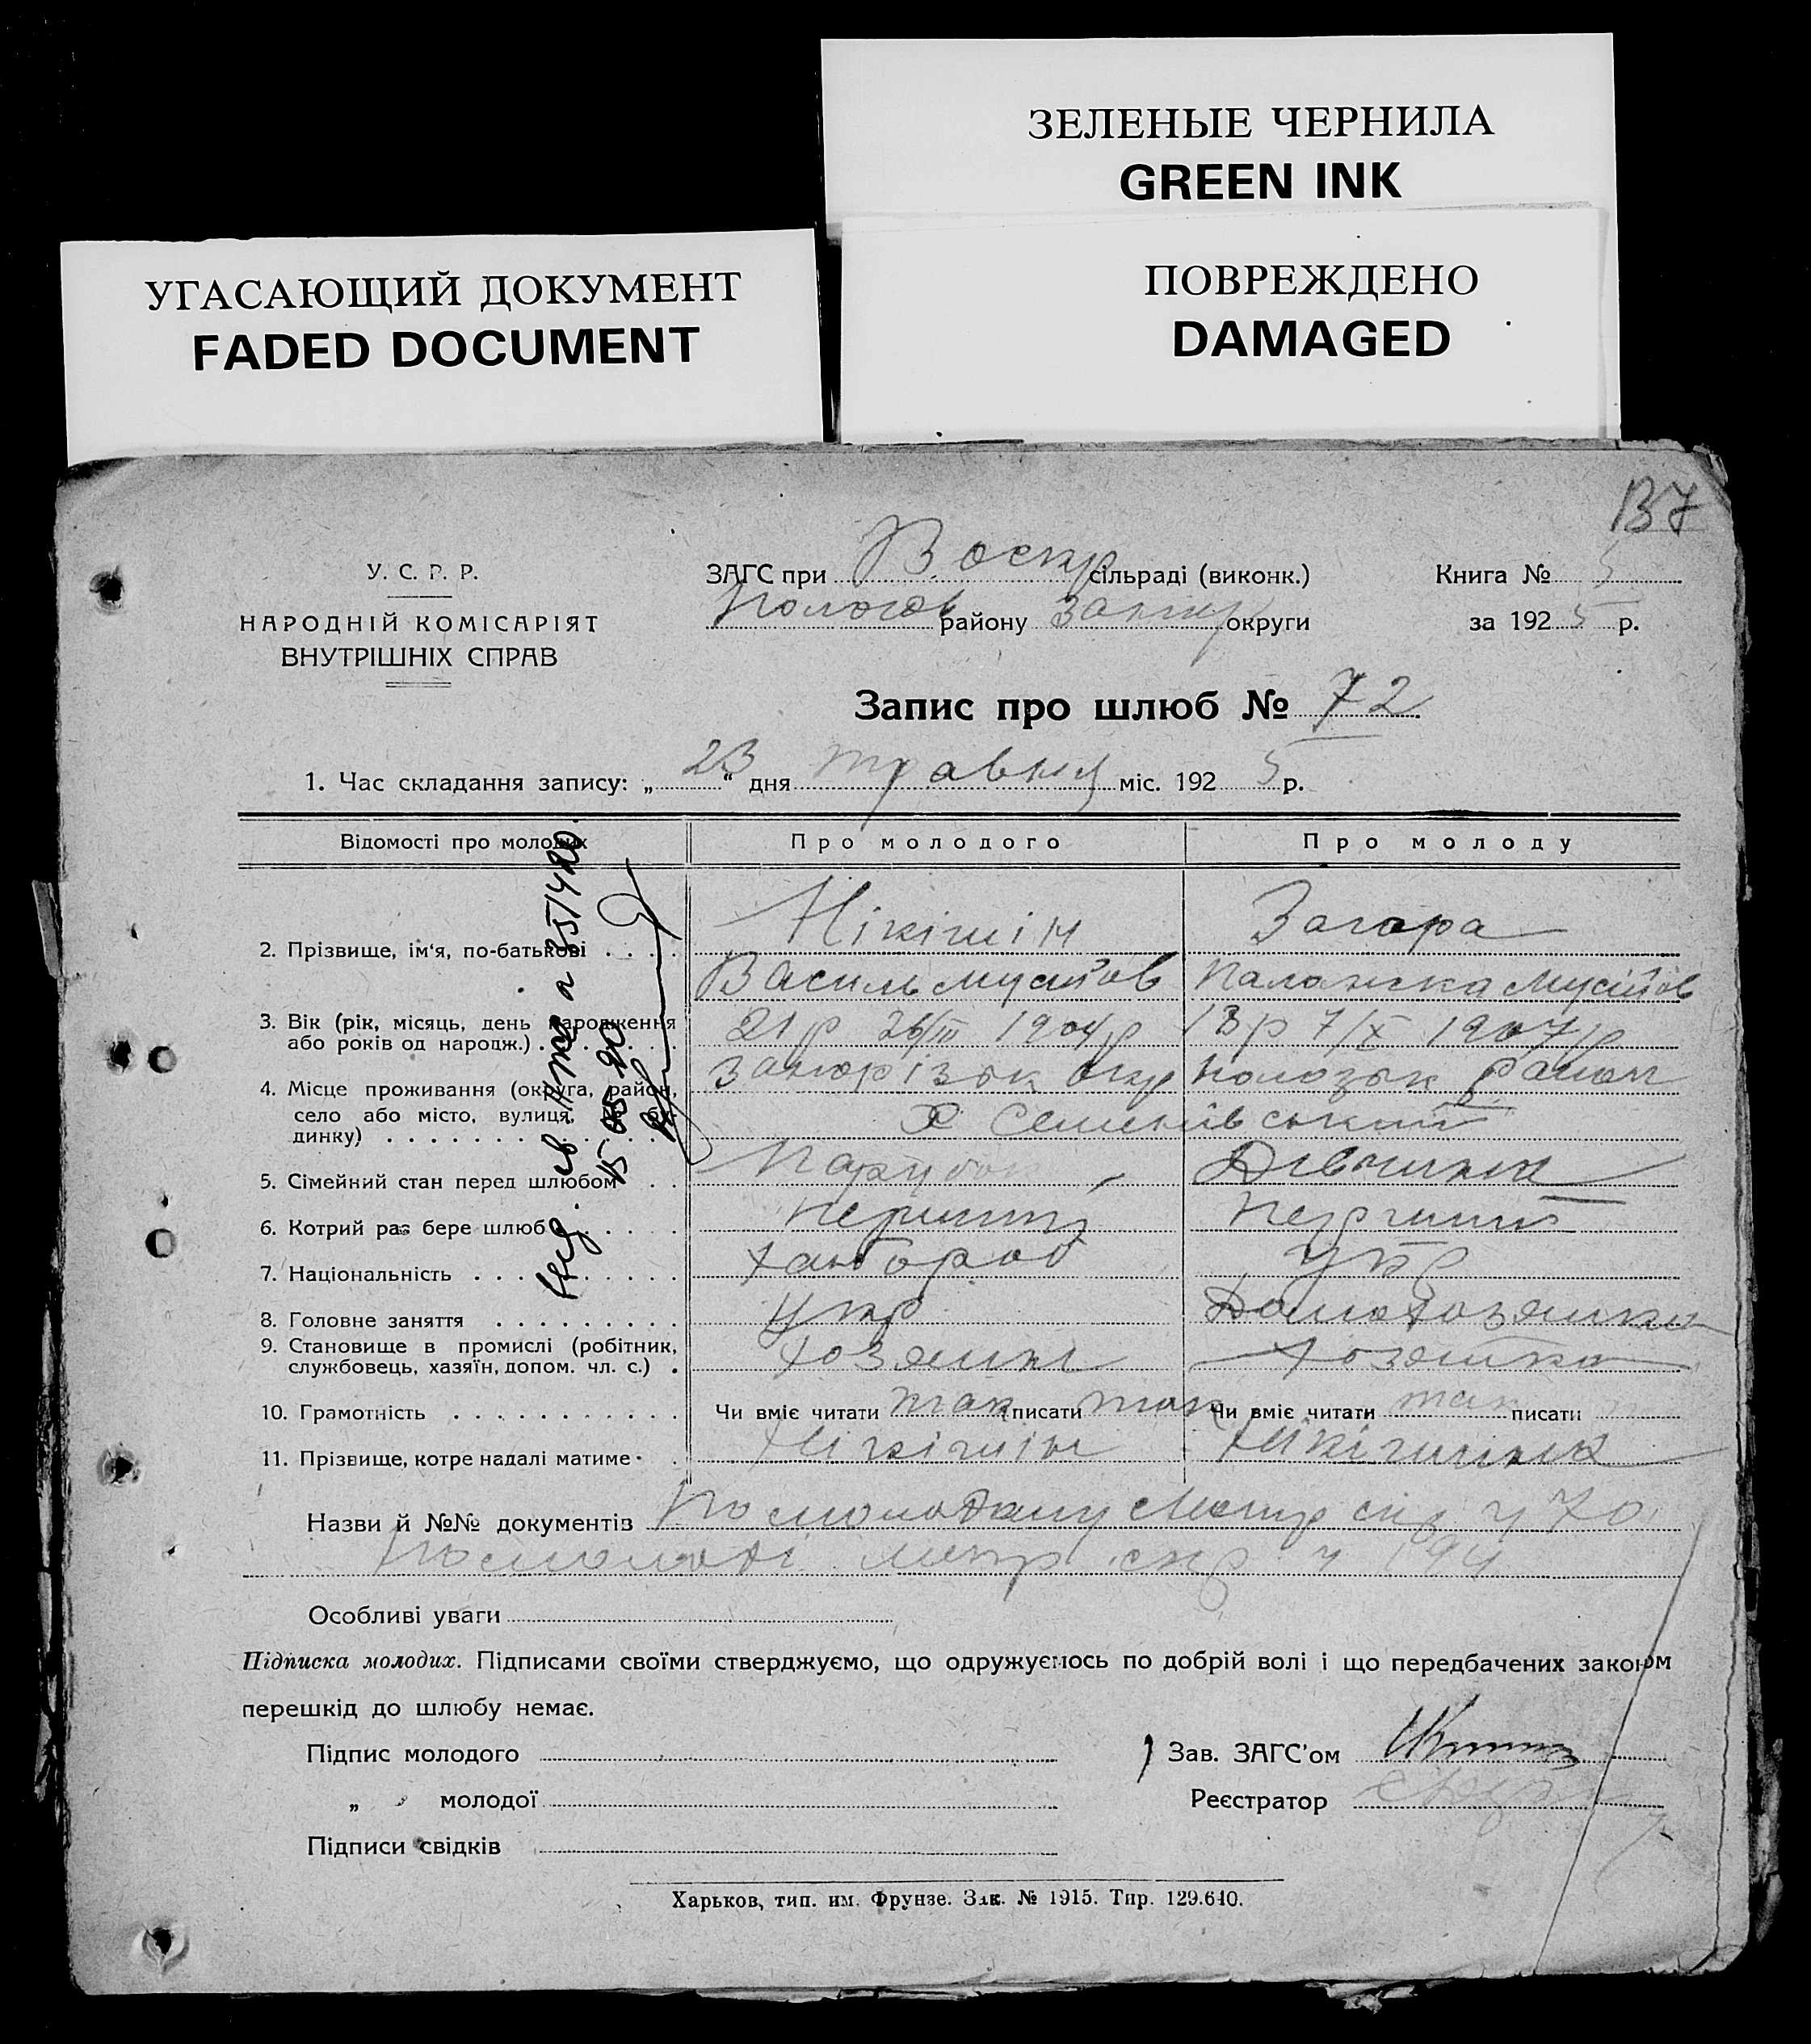 ЗЕЛЕНЫЕ ЧЕРНИЛА
GREEN INK
УГАСАЮЩИЙ ДОКУМЕНТ
FADED DOCUMENT
ПОВРЕЖДЕНО
DAMAGED
137
У. С. Р. Р.
НАРОДНІЙ КОМІСАРІЯТ
ВНУТРІШНІХ СПРАВ
ЗАГС при Воскр сільраді (виконк.)
Пологов району Запор округи
Книга № 5
за 1925 р.
Запис про шлюб № 72
1. Час складання запису: „ 23 “ дня травня міс. 1925 р.
Відомості про молодих Про молодого Про молоду
2. Прізвище, ім'я, по-батькові Нікішін Загора
Василь Мусійов Палажка Мусійов
3. Вік (рік, місяць, день народження або років од народж.) 21 р 26/III 1904 р 18 р 7/X 1907 р
4. Місце проживання (округа, район, село або місто, вулиця, № будинку) Запорізьк окр Пологзьк район
Х Семенівський
5. Сімейний стан перед шлюбом Парубок Дівчина
6. Котрий раз бере шлюб перший перший
7. Національність Хлібороб Укр
8. Головне заняття Укр Домохозяйка
9. Становище в промислі (робітник, службовець, хазяїн, допом. чл. с.) хозяин хозяйка
10. Грамотність Чи вміє читати так писати так Чи вміє читати так писати
11. Прізвище, котре надалі матиме Нікішін Нікішина
Назви й №№ документів По молодому Метр 70
По молоді метр 194
Особливі уваги
Підписка молодих. Підписами своїми стверджуємо, що одружуємось по добрій волі і що передбачених законом
перешкід до шлюбу немає.
Підпис молодого
„ молодої
Підписи свідків
Зав. ЗАГС'ом
Реєстратор
Харьков, тип. им. Фрунзе. Зак. № 1915. Тир. 129.640.